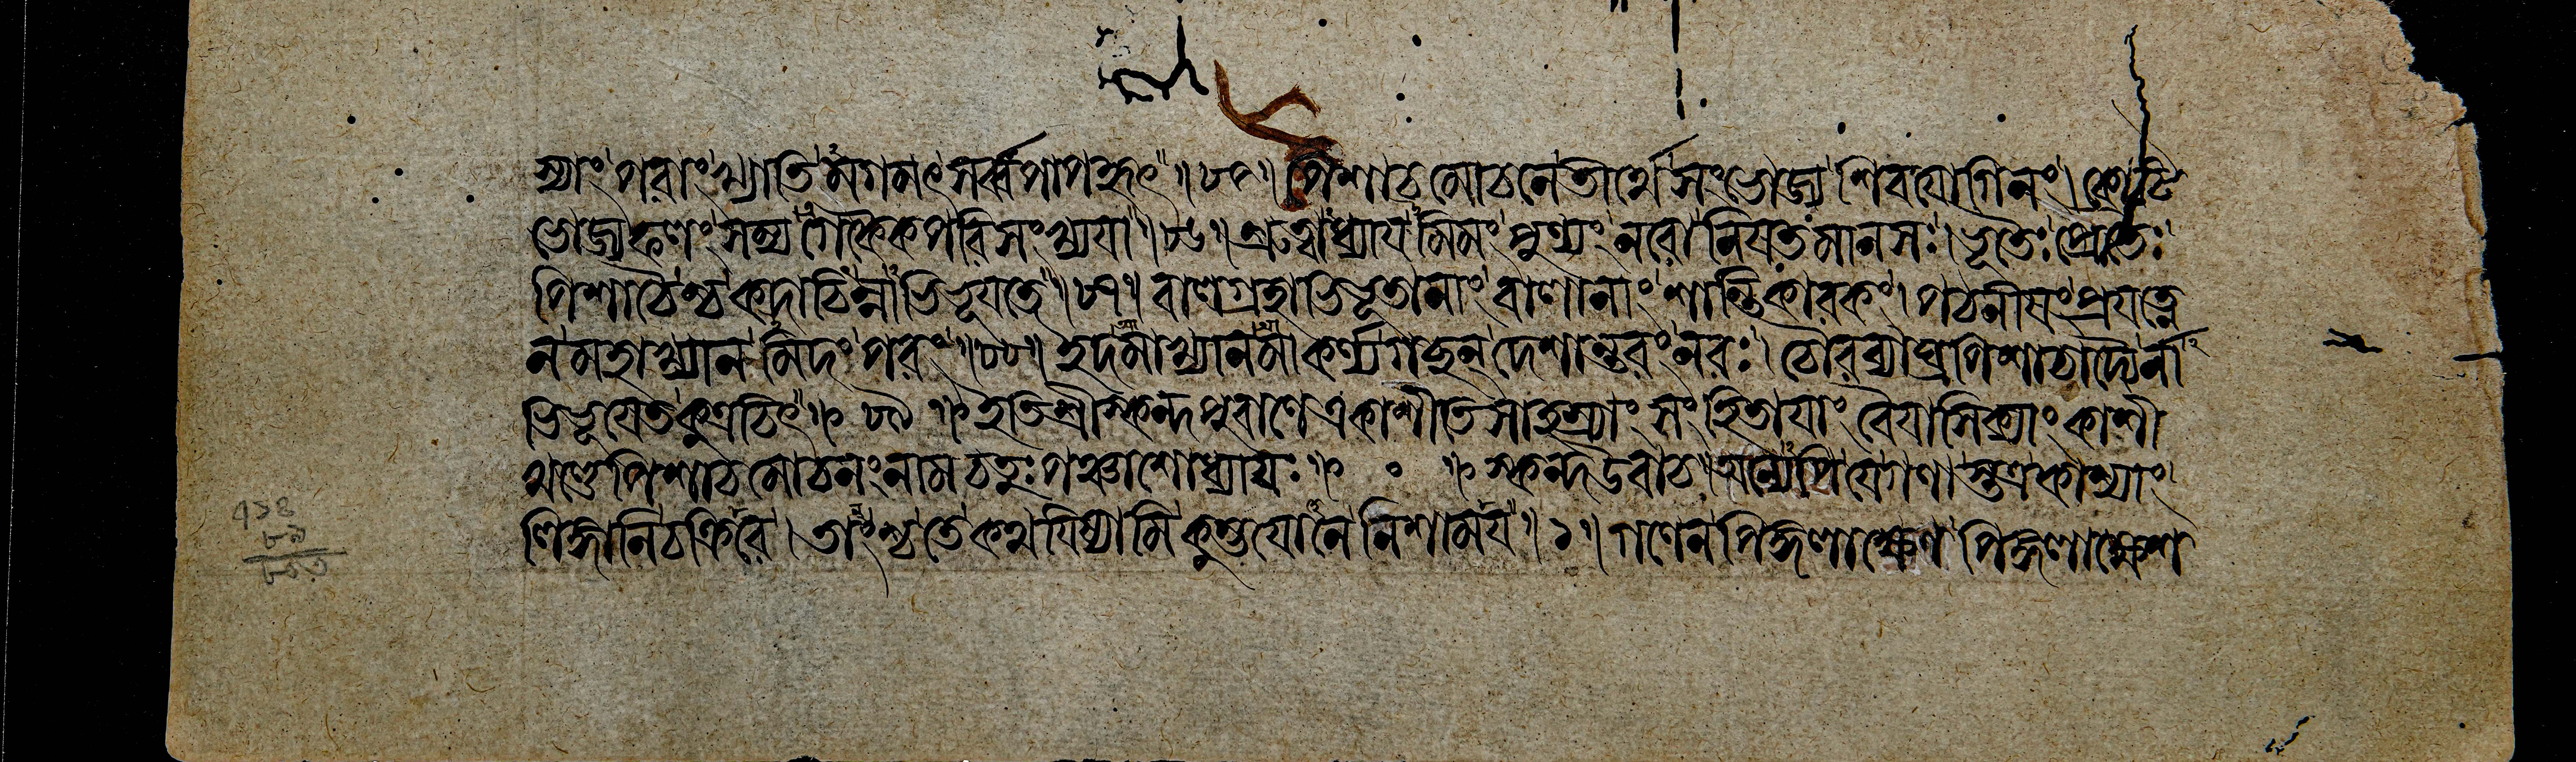 স্যাং পরাং খ্যাতিমগমৎ সর্ব্বপাপহৃৎ॥৮৫॥ পিশাচমোচনেতীর্থে সংভোজ্য শিবযোগিনং। কোটি
ভোজ্যফলং সম্যগেকৈকপরিসংখ্যয়া॥৮৬॥ শ্রুত্বাধ্যায়মিমং পুণ্যং নরো নিয়তমানসঃ। ভূতৈঃ প্রেতৈঃ
পিশাচৈশ্চ কদাচিন্নাভিভূয়তে॥৮৭॥ বালগ্রহাভিভূতানাং বালানাং শান্তিকারকং। পঠনীয়ং প্রযত্নে
ন মহাখ্যানমিদং পরং॥৮৮॥ ইদমাখ্যানমাকর্ণ্য গচ্ছন্ দেশান্তরং নরঃ। চৌরব্যাঘ্রপিশাচাদ্যৈর্না
ভিভূয়েত কুত্রচিৎ॥৮৯॥ ইতি শ্রীস্কন্দপুরাণে একাশীতিসাহস্র্যাং সংহিতায়াং বৈয়াসিক্যাং কাশী
খণ্ডে পিশাচমোচনং নাম চতুঃপঞ্চাশোধ্যায়ঃ॥ ॰ ॥ স্কন্দ উবাচ। অন্যেপি যে গণাস্তত্র কাশ্যাং
লিঙ্গানি চক্রিরে। তাংশ্চ তে কথয়িষ্যামি কুম্ভযোনে নিশাময়॥১॥ গণেন পিঙ্গলাক্ষেণ পিঙ্গলাক্ষেশ